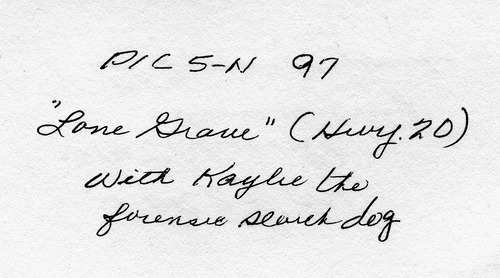 PIC 5-N 97
"Lone Grave" (Hwy. 20)
with Kaylie the
forensic search dog